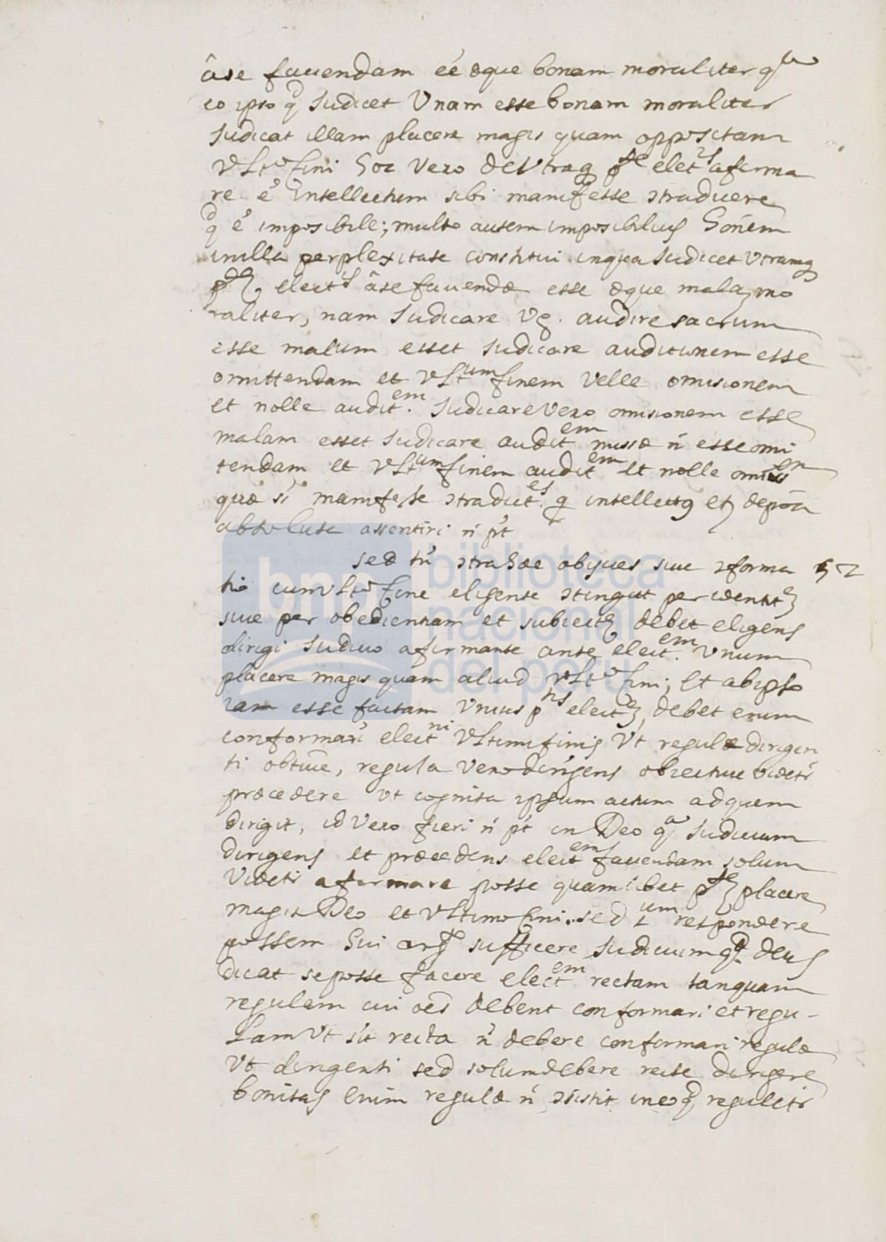 âse faciendam eé æque bonam moraliter qª
eo ipso q̄ Judicet Vnam esse bonam moraliter
Judicat illam placere magis quam oppositam
Vltº fini hoc Vero de Vtraq; elect afirma
re é Intellectum sibi manifeste ɔtradicere
q̄ é imposibile; multo autem imposibilius honẽm
in illa perplexitate constitui in qua Judicet Vtramq;
elect âse faciendæ esse æque mala mo
raliter, nam Judicare Vg. audire sacrum
esse malum esset Judicare auditionem esse
omittendam et Vltum finem Velle omisionem
et nolle audit.em Judicare Vero omisionem esse
malam esset Judicare auditem missæ ñ esse omi
tendam et Vltum finem auditem et nolle omisen
quæ sí manifeste ɔtradictes q intellectq et depoã
absolute assentiri ñ pt
biblioteca nacional del perú
sed tñ obijces siue ɔforma 52
tio cum Vltº fine eligente ɔtingit per identit
siue per obedientiam et subiect debet eligens
dirigi Judicio afirmante ante elect.em Vnum
placere magis quam aliud Vltº fini; et ab ipso
iam esse factam Vnius elect, debet enim
conformari electni Vltimi finis Vt regulæ dirigen
ti obtiue, regula Vero dirigens obiectiue Videtr
præcedere Vt cognita ipsum actum ad quem
dirigit, id Vero fieri ñ pt in Deo qª Judicium
dirigens et præcedens electem faciendam solum
Videtr afirmare posse quamlibet placere
magis Deo et Vltimo fini. sed respondere
possem hui argto sufficere Judicium qd. deus
dicat se posse facere electem rectam tanquam
regulam cui oẽs debent conformari et regu-
lam Vt sit recta ñ debere conformari regulæ
Vt dirigenti sed solum debere recte dirigere
bonitas enim regulæ ñ ɔsistit in eo q̄ reguletr